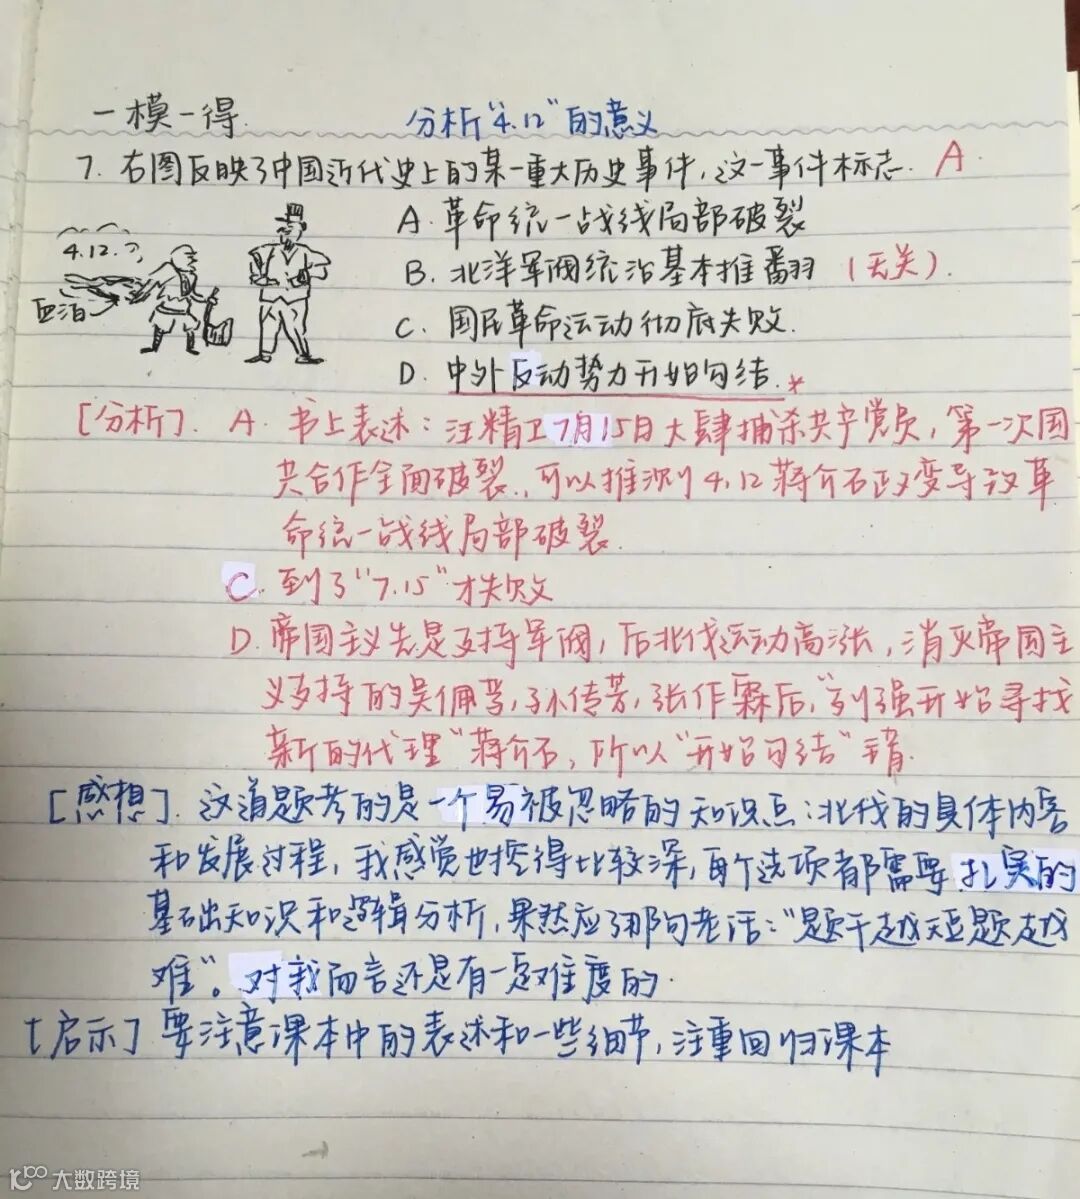 一模一得. 分析"4.12"的意义
7. 右图反映了中国近代史上的某一重大历史事件,这一事件标志. A.
A. 革命统一战线局部破裂
4.12.
B. 北洋军阀统治基本推翻 (无关).
血泊
C. 国民革命运动彻底失败.
D. 中外反动势力开始勾结.
[分析]. A. 书上表述:汪精卫7月15日大肆捕杀共产党员,第一次国
共合作全面破裂.,可以推测4.12蒋介石政变导致革
命统一战线局部破裂.
C. 到了"7.15"才失败
D. 帝国主义先是支持军阀,后北伐运动高涨,消灭帝国主
义支持的吴佩孚,孙传芳,张作霖后,"列强开始寻找
新的代理"蒋介石,所以"开始勾结"错.
[感想]. 这道题考的是一个易被忽略的知识点:北伐的具体内容
和发展过程,我感觉也挖得比较深,每个选项都需要扎实的
基础知识和逻辑分析,果然应了那句老话:"题干越短题越
难"。对我而言还是有一定难度的.
[启示] 要注意课本中的表述和一些细节,注重回归课本
大数跨境